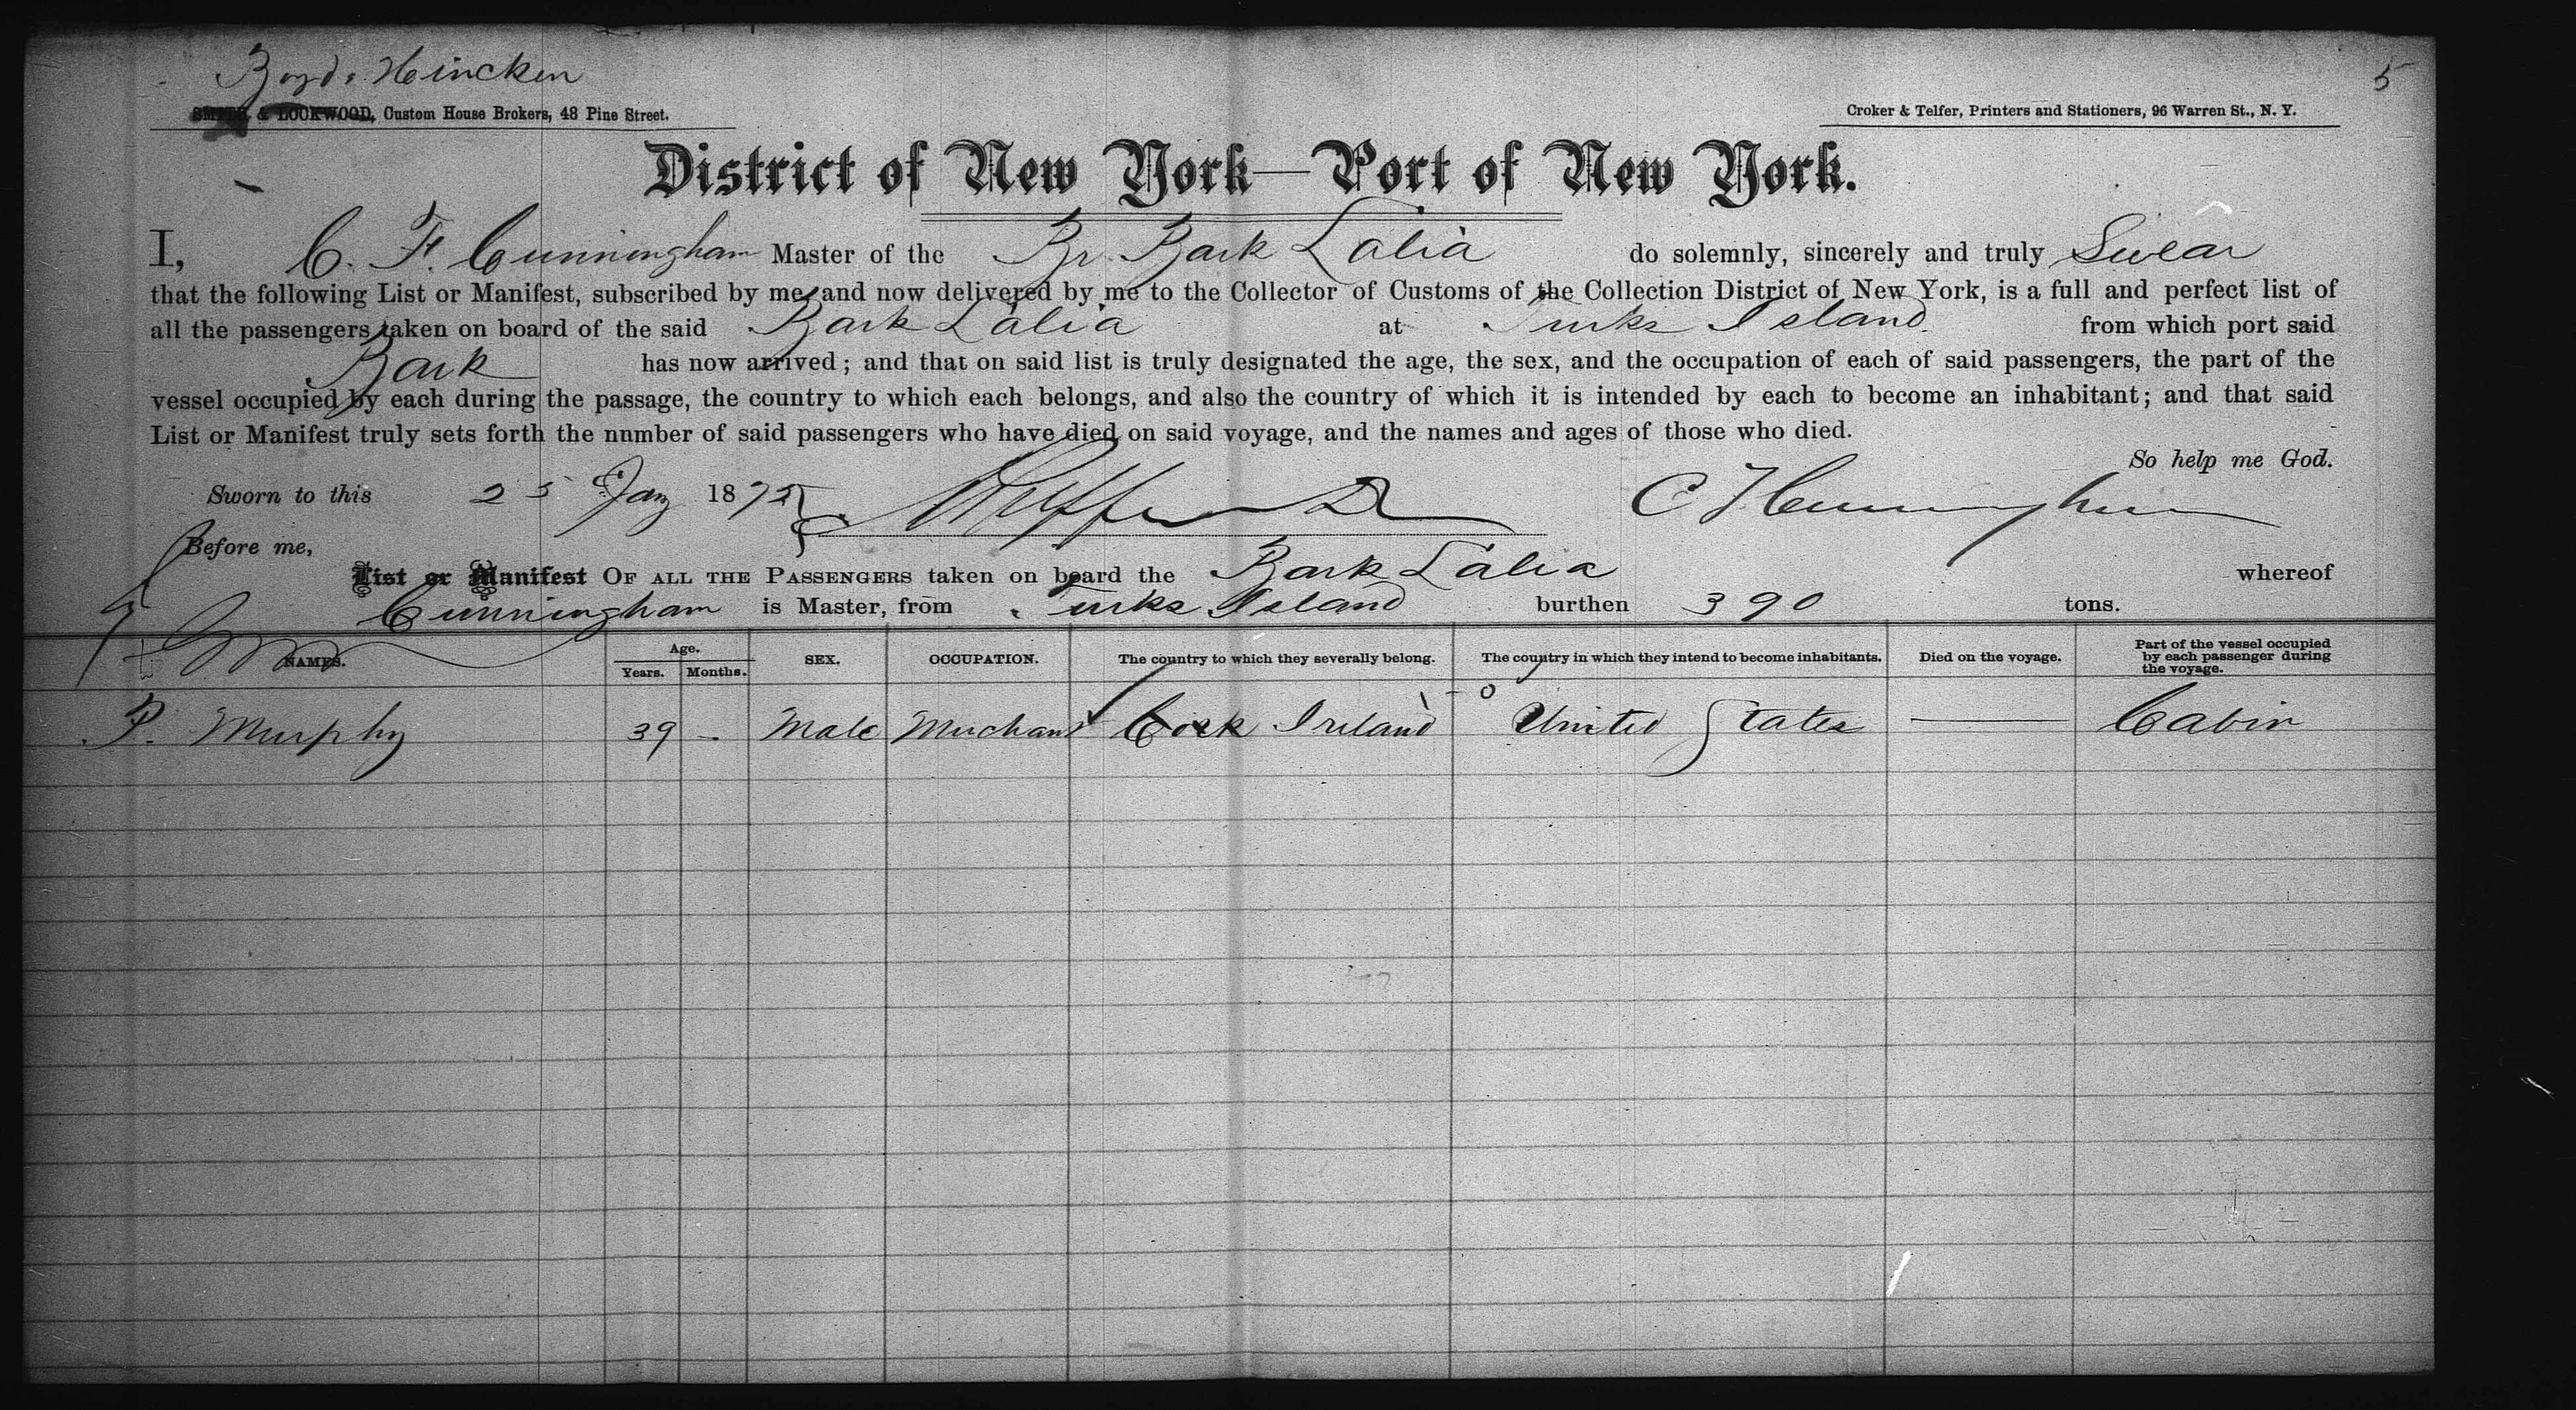 Boyd & Hincken
5
SMITH & LOCKWOOD, Custom House Brokers, 48 Pine Street.
Croker & Telfer, Printers and Stationers, 96 Warren St., N. Y.
District of New York—Port of New York.
I, C. F. Cunningham Master of the Br Bark Lalia do solemnly, sincerely and truly Swear
that the following List or Manifest, subscribed by me, and now delivered by me to the Collector of Customs of the Collection District of New York, is a full and perfect list of
all the passengers taken on board of the said Bark Lalia at Turks Island from which port said
Bark has now arrived; and that on said list is truly designated the age, the sex, and the occupation of each of said passengers, the part of the
vessel occupied by each during the passage, the country to which each belongs, and also the country of which it is intended by each to become an inhabitant; and that said
List or Manifest truly sets forth the number of said passengers who have died on said voyage, and the names and ages of those who died.
So help me God.
Sworn to this 25 Jany 1875 C F Cunningham
Before me,
List or Manifest OF ALL THE PASSENGERS taken on board the Bark Lalia whereof
Cunningham is Master, from Turks Island burthen 390 tons.
NAMES. Age. Years. Months. SEX. OCCUPATION. The country to which they severally belong. The country in which they intend to become inhabitants. Died on the voyage. Part of the vessel occupied by each passenger during the voyage.
P. Murphy 39 - Male Merchant Cork Ireland United States — Cabin